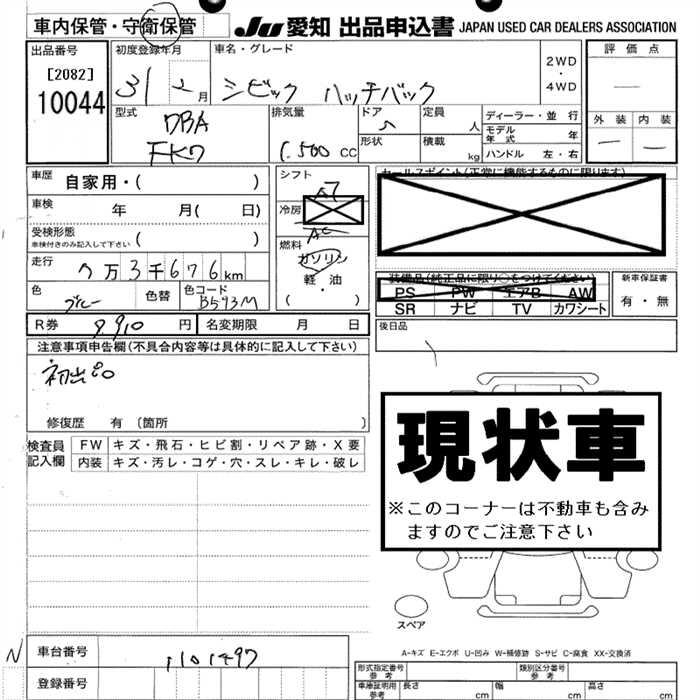 車内保管・守衛保管
JU 愛知 出品申込書 JAPAN USED CAR DEALERS ASSOCIATION
出品番号
[2082]
10044
初度登録年月
31 2月
車名・グレード
シビック ハッチバック
2WD
・
4WD
評価点
—
外装 内装
— —
型式
DBA
FK7
排気量
1.500cc
ドア
5
形状
定員
人
積載
kg
ディーラー・並行
モデル年式 年
ハンドル 左・右
車歴 自家用・( )
車検 年 月( 日)
受検形態
車検付きのみ記入して下さい ( )
走行 7万3千676km
色 ブルー
色替
色コード
B593M
シフト
A7
冷房
AC
燃料
ガソリン
軽・油
( )
セールスポイント(正常に機能するものに限ります)
装備品(純正品に限り○をつけてください)
PS PW エアB AW
SR ナビ TV カワシート
新車保証書
有・無
後日品
R券 9910円
名変期限 月 日
注意事項申告欄(不具合内容等は具体的に記入して下さい)
初出品
修復歴 有 〔箇所 〕
検査員記入欄
FW キズ・飛石・ヒビ割・リペア跡・X要
内装 キズ・汚レ・コゲ・穴・スレ・キレ・破レ
現状車
※このコーナーは不動車も含み
ますのでご注意下さい
スペア
A-キズ E-エクボ U-凹み W-補修跡 S-サビ C-腐食 XX-交換済
N
車台番号 1101497
登録番号
形式指定番号
参考
類別区分番号
参考
車庫証明用
参考
長さ cm
幅 cm
高さ cm